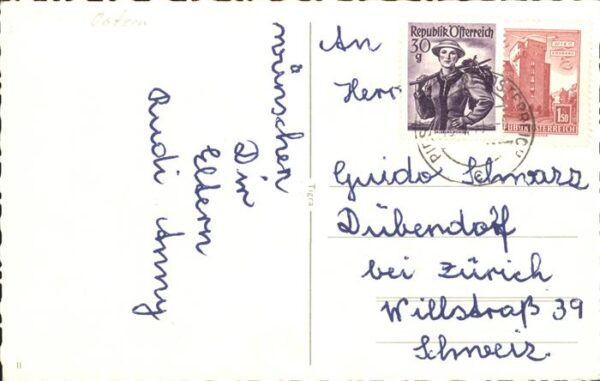 Ostern
wünschen
Dir
Eltern
Rudi Anny
Tigra
II
An
Herr
Guido Schwarz
Dübendorf
bei Zürich
Willstraß 39
Schweiz
Republik Österreich
30
g
1.50
REPUBLIK ÖSTERREICH